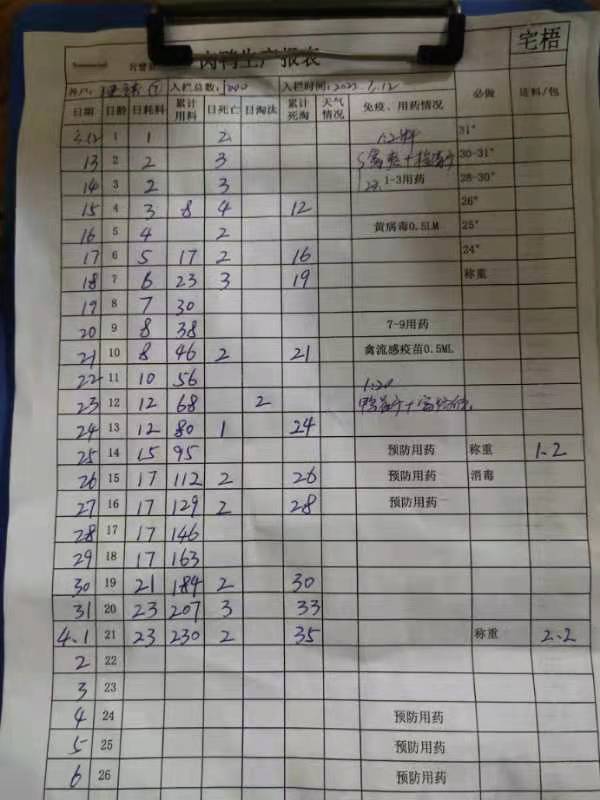 宅梧
肉鸭生产报表
入栏总数: 入栏时间:2022.1.12
日期 日龄 日耗料 累计用料 日死亡 日淘汰 累计死淘 天气情况 免疫、用药情况 必做 送料/包
3.12 1 1 2 31°
13 2 2 3 30-31°
14 3 2 3 1-3用药 28-30°
15 4 3 8 4 12 26°
16 5 4 2 黄病毒0.5LM 25°
17 6 5 17 2 16 24°
18 7 6 23 3 19 称重
19 8 7 30
20 9 8 38 7-9用药
21 10 8 46 2 21 禽流感疫苗0.5ML
22 11 10 56 1.20
23 12 12 68 2
24 13 12 80 1 24
25 14 15 95 预防用药 称重 1.2
26 15 17 112 2 26 预防用药 消毒
27 16 17 129 2 28 预防用药
28 17 17 146
29 18 17 163
30 19 21 184 2 30
31 20 23 207 3 33
4.1 21 23 230 2 35 称重 2.2
2 22
3 23
4 24 预防用药
5 25 预防用药
6 26 预防用药